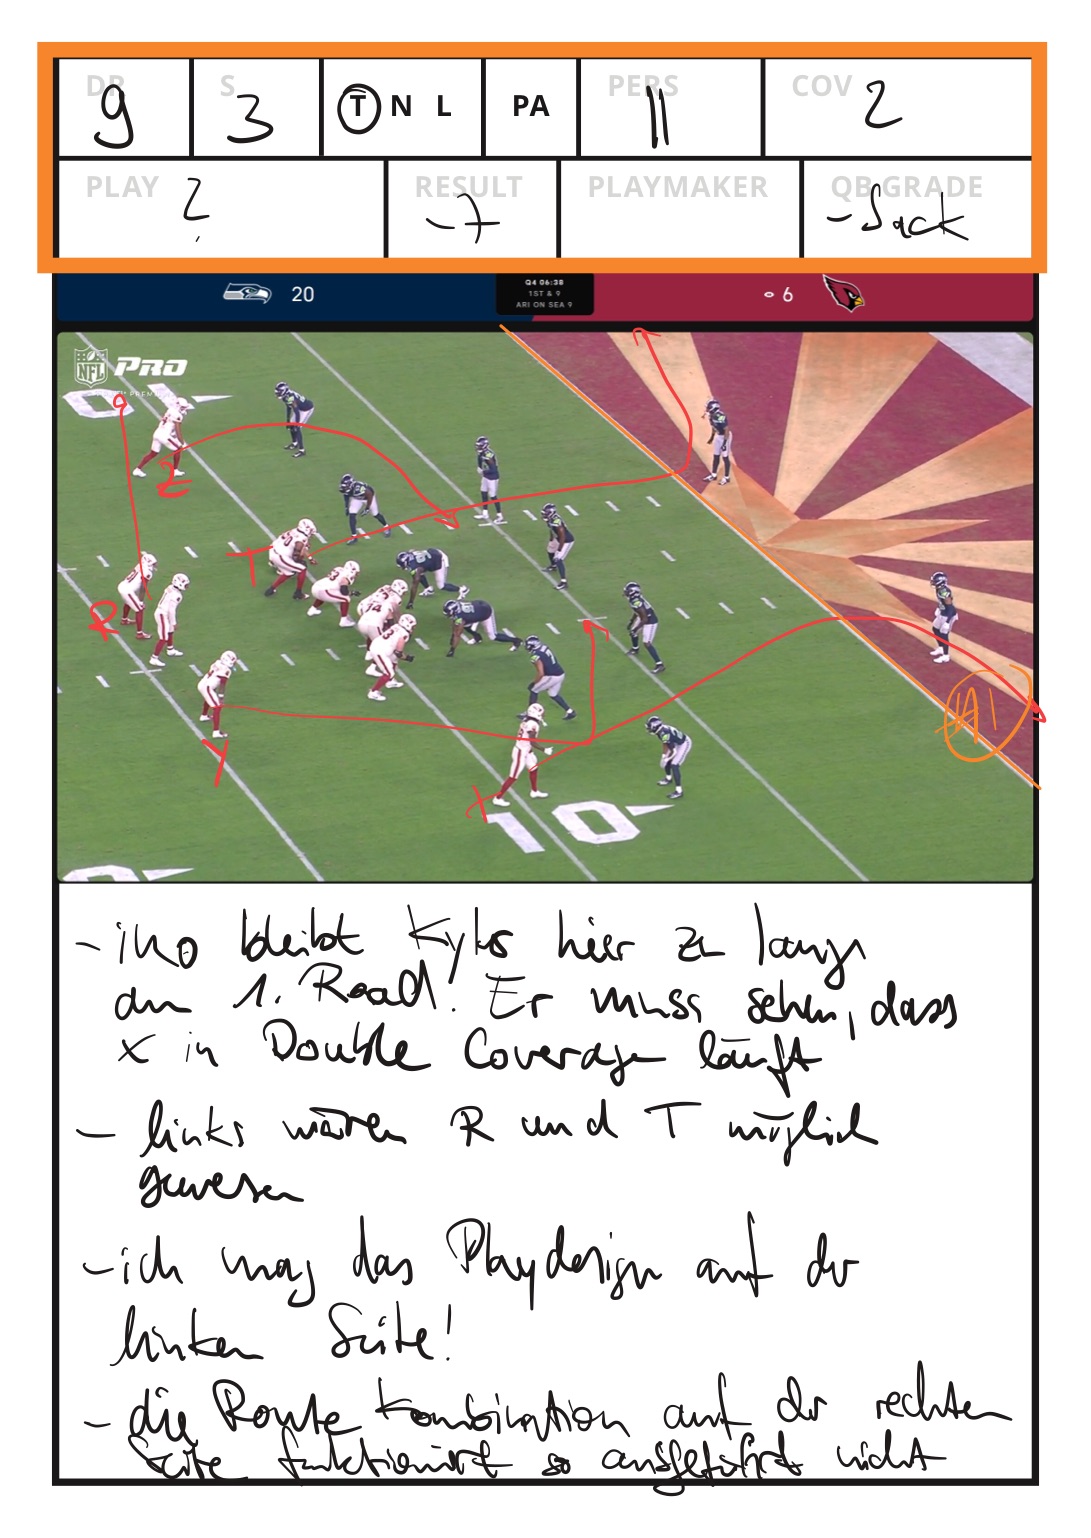 DR 9 S 3 T N L PA PERS 11 COV 2
PLAY ? RESULT -7 PLAYMAKER QB GRADE - Sack
20 Q4 06:38 6
1ST & 9
ARI ON SEA 9
NFL PRO
Z
T
R
Y
X
A1
1 0
- imo bleibt Kyler hier zu lange
am 1. Read! Er muss sehen, dass
X in Double Coverage läuft
- links wären R und T möglich
gewesen
- ich mag das Playdesign auf der
linken Seite!
- die Route Kombination auf der rechten
Seite funktioniert so ausgeführt nicht